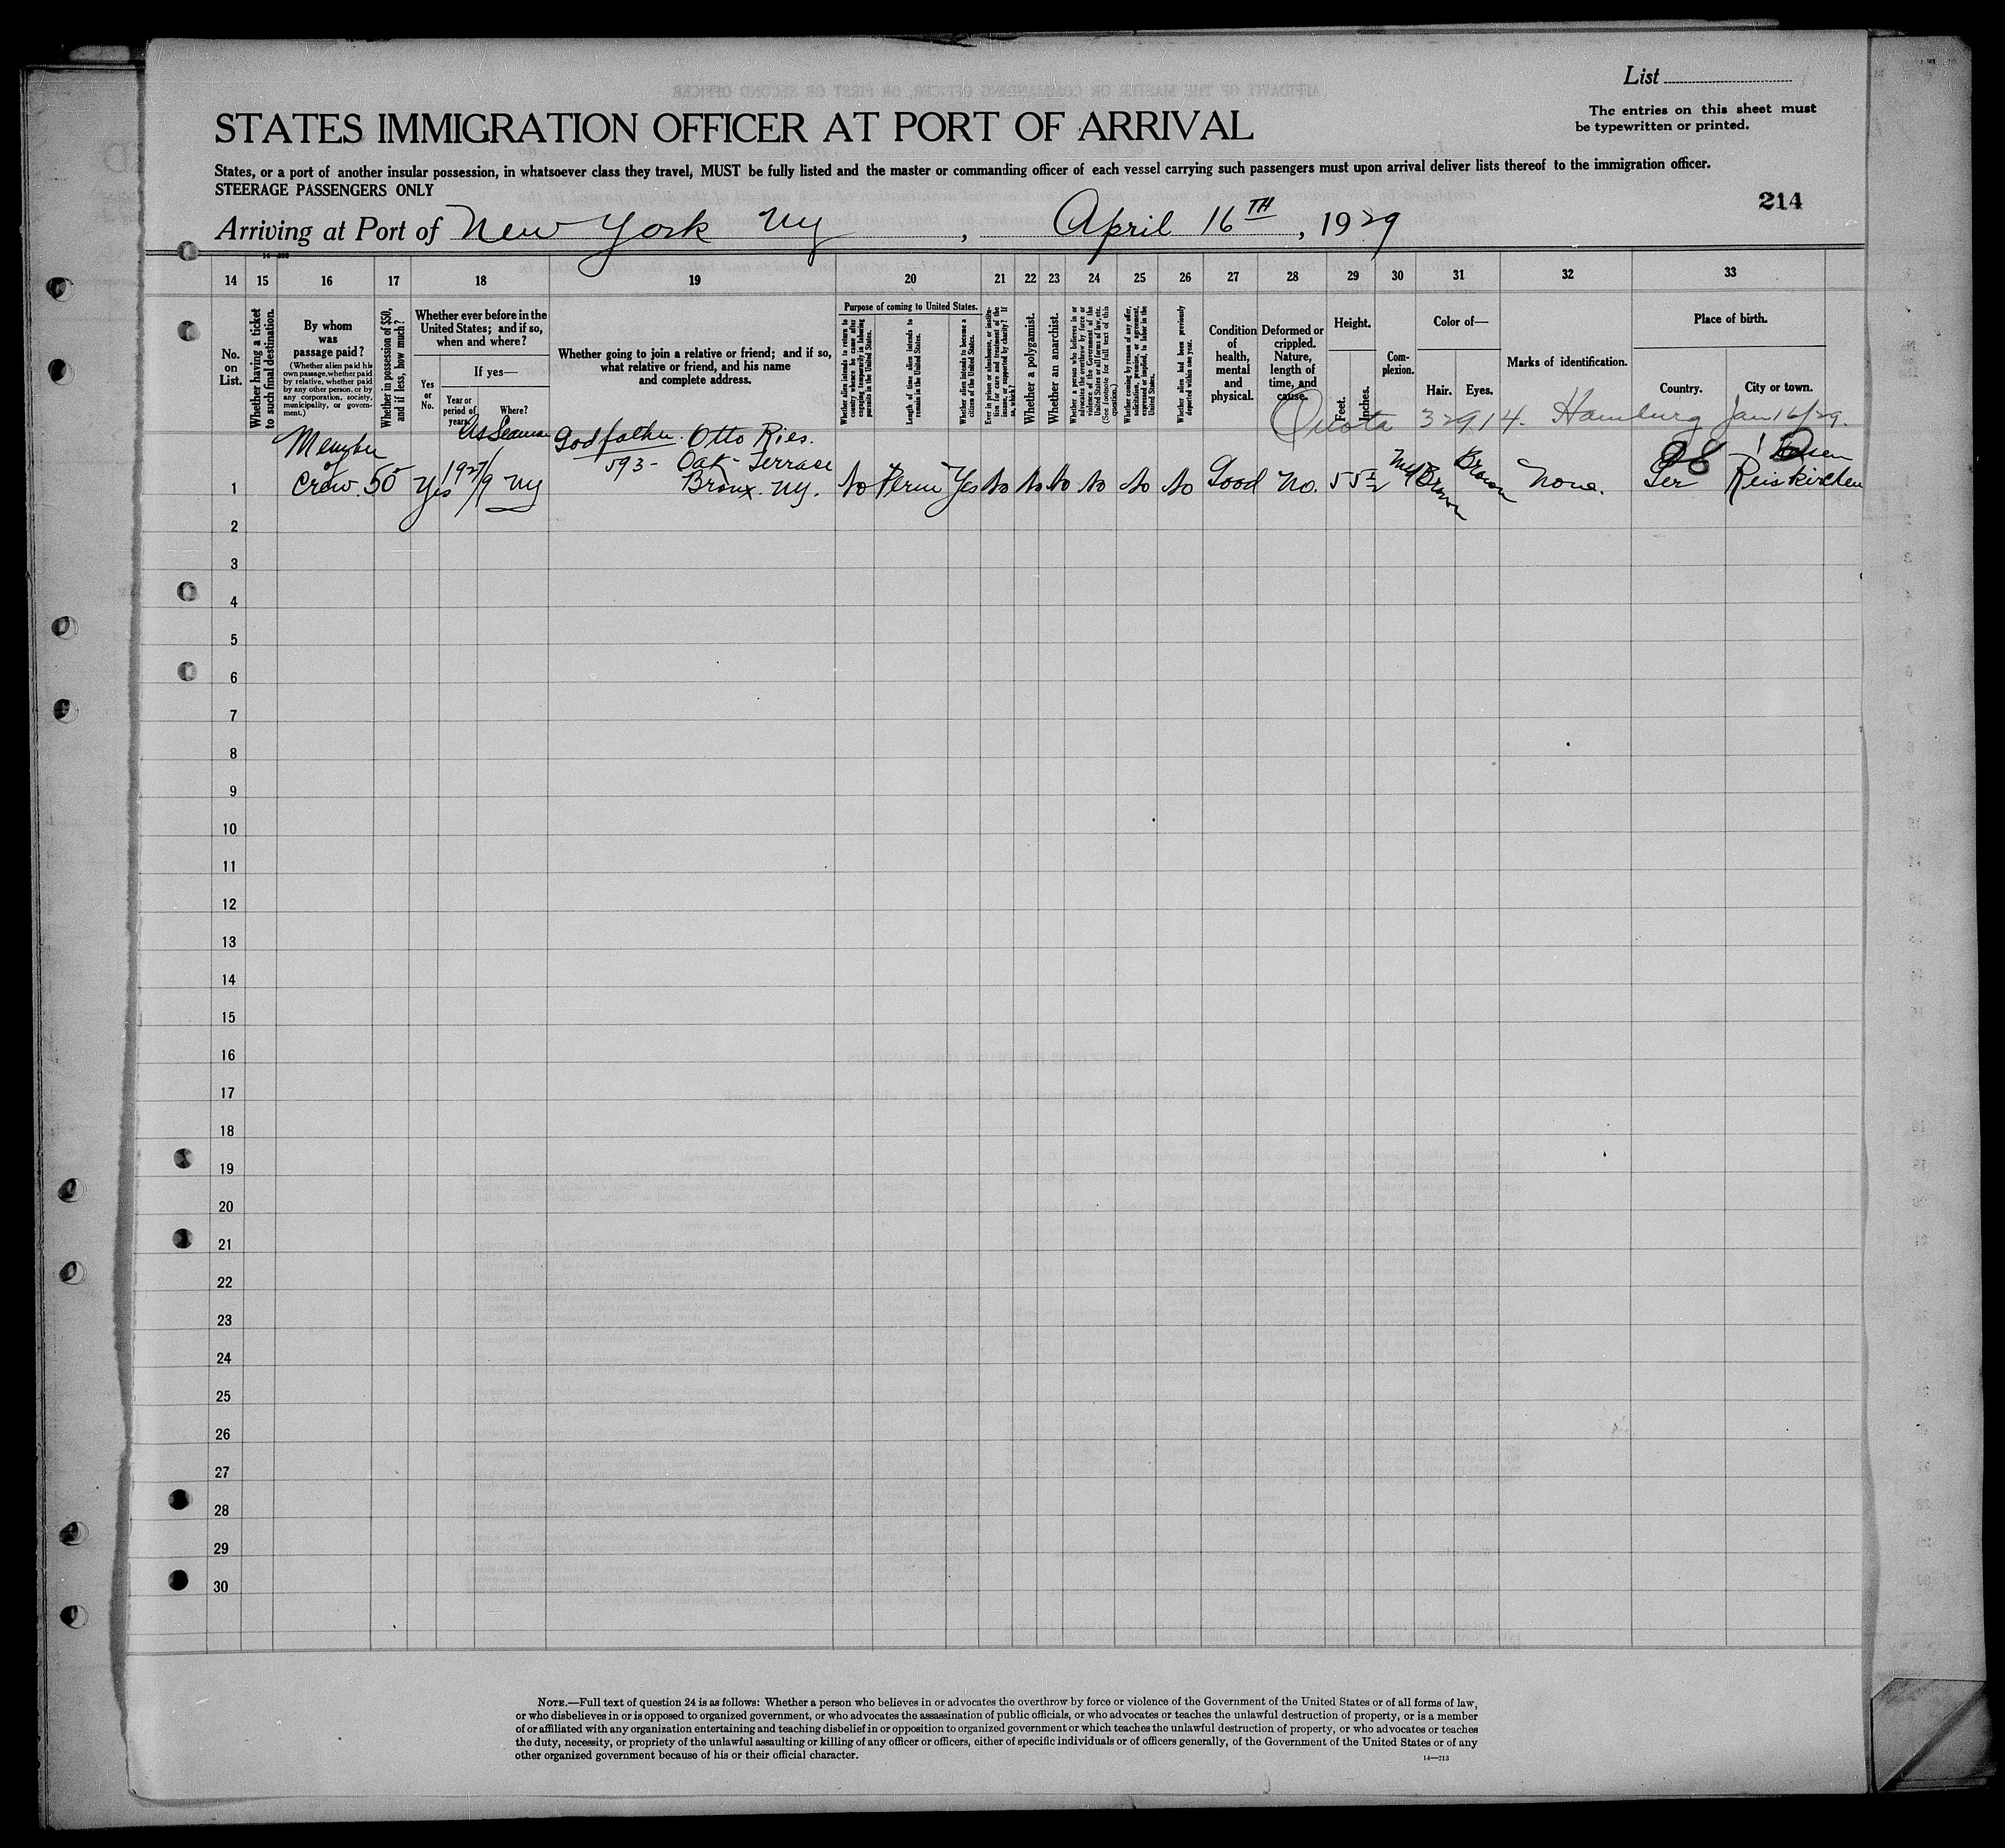 List
The entries on this sheet must
be typewritten or printed.
STATES IMMIGRATION OFFICER AT PORT OF ARRIVAL
States, or a port of another insular possession, in whatsoever class they travel, MUST be fully listed and the master or commanding officer of each vessel carrying such passengers must upon arrival deliver lists thereof to the immigration officer.
STEERAGE PASSENGERS ONLY
214
Arriving at Port of New York NY, April 16TH, 1929
14 15 16 17 18 19 20 21 22 23 24 25 26 27 28 29 30 31 32 33
No. on List.
Whether having a ticket to such final destination.
By whom was passage paid?
(Whether alien paid his own passage, whether paid by relative, whether paid by any other person, or by any corporation, society, municipality, or government.)
Whether in possession of $50, and if less, how much?
Whether ever before in the United States; and if so, when and where?
Yes or No.
If yes—
Year or period of years.
Where?
Whether going to join a relative or friend; and if so, what relative or friend, and his name and complete address.
Purpose of coming to United States.
Whether alien intends to return to country whence he came after engaging temporarily in laboring pursuits in the United States.
Length of time alien intends to remain in the United States.
Whether alien intends to become a citizen of the United States.
Ever in prison or almshouse, or institution for care and treatment of the insane, or supported by charity? If so, which?
Whether a polygamist.
Whether an anarchist.
Whether a person who believes in or advocates the overthrow by force or violence of the Government of the United States or all forms of law, etc. (See footnote for full text of this question.)
Whether coming by reason of any offer, solicitation, promise, or agreement, expressed or implied, to labor in the United States.
Whether alien had been previously deported within one year.
Condition of health, mental and physical.
Deformed or crippled. Nature, length of time, and cause.
Height.
Feet. Inches.
Complexion.
Color of—
Hair. Eyes.
Marks of identification.
Place of birth.
Country. City or town.
Quota 32914. Hamburg Jan 16/29.
1 Member of Crew. 50 Yes 1927/9 NY As Seaman Godfather. Otto Ries. 593- Oak- Terrace Bronx. NY. No Perm Yes No No No No No No Good No. 5 5½ Med Brown Brown None. Ger Reiskirchen
2
3
4
5
6
7
8
9
10
11
12
13
14
15
16
17
18
19
20
21
22
23
24
25
26
27
28
29
30
NOTE.—Full text of question 24 is as follows: Whether a person who believes in or advocates the overthrow by force or violence of the Government of the United States or of all forms of law,
or who disbelieves in or is opposed to organized government, or who advocates the assassination of public officials, or who advocates or teaches the unlawful destruction of property, or is a member
of or affiliated with any organization entertaining and teaching disbelief in or opposition to organized government or which teaches the unlawful destruction of property, or who advocates or teaches
the duty, necessity, or propriety of the unlawful assaulting or killing of any officer or officers, either of specific individuals or of officers generally, of the Government of the United States or of any
other organized government because of his or their official character.
14—213